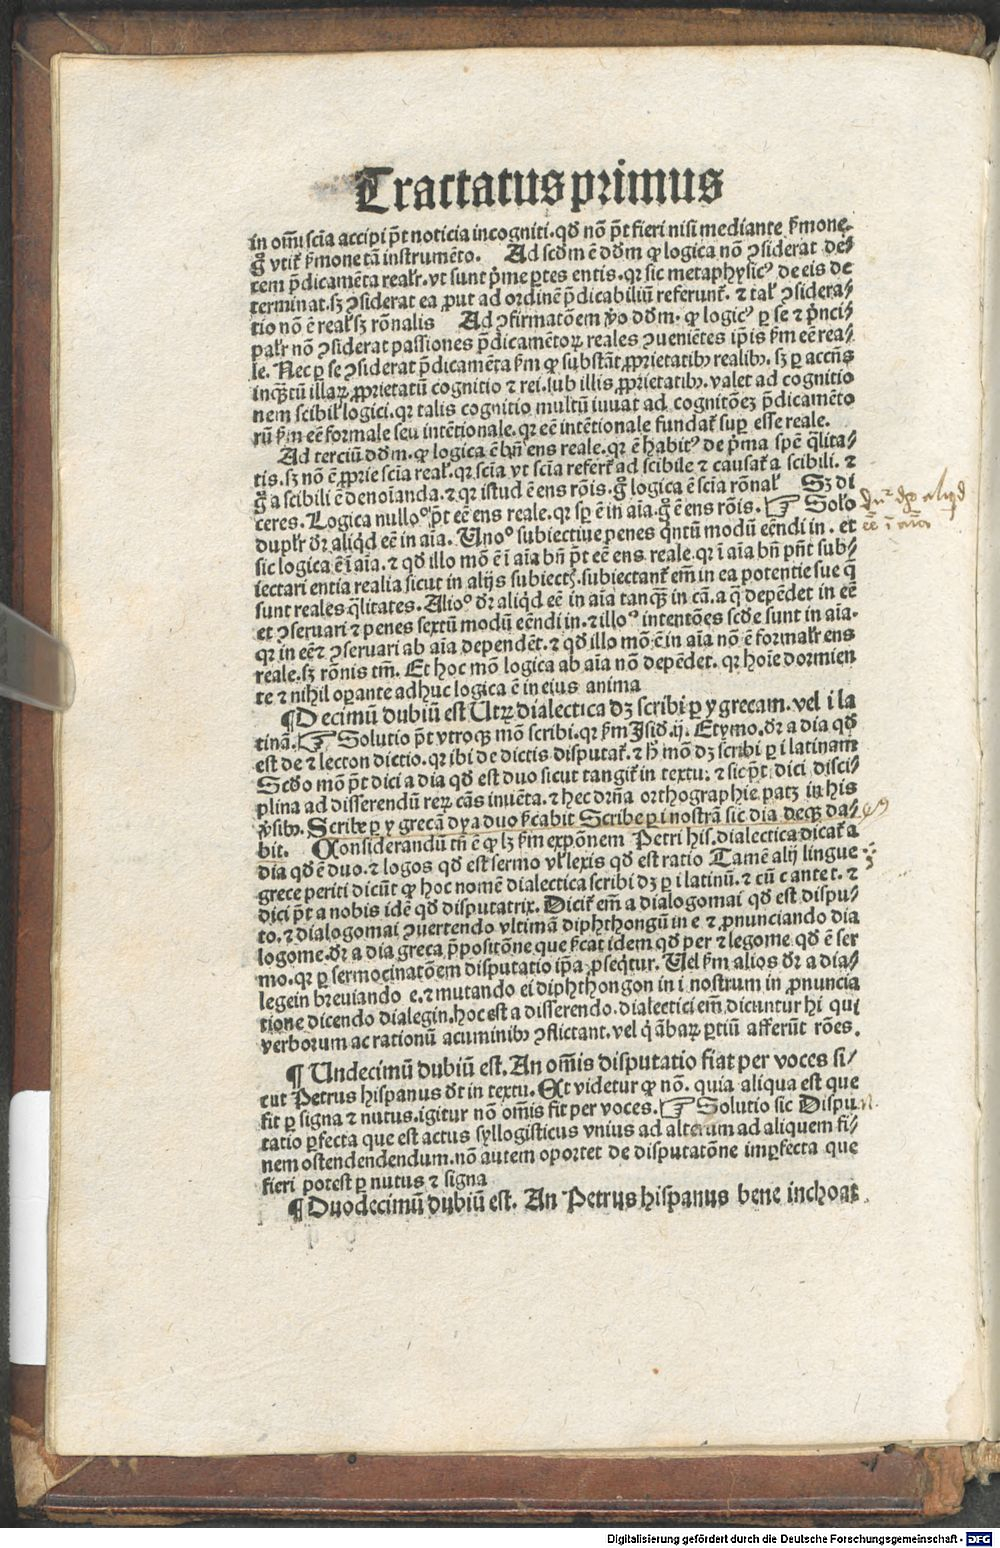 Tractatus primus
in om̄i scīa accipi p̄t noticia incogniti. qđ nō p̄t fieri nisi mediante ẜmone.
g̊ vtiꝶ ẜmone tā instrumēto. Ad scđm ē dđm ꝙ logica nō ꝯsiderat de⸗
cem p̄dicamēta realr̄. vt sunt p̄me ꝑtes entis. qꝛ sic metaphysicꝰ de eis de
terminat. sꝫ ꝯsiderat ea ꝓut ad ordinē p̄dicabiliū referunt̄. ⁊ tał ꝯsidera⸗
tio nō ē reał sꝫ rōnalis Ad ꝯfirmatōem v̊o dđm. ꝙ logicꝰ ꝑ se ⁊ p̄nci⸗
palr̄ nō ꝯsiderat passiones p̄dicamētoꝝ reales ꝯuenientes ip̄is ẜm eē rea⸗
le. Nec ꝑ se ꝯsiderat p̄dicamēta ẜm ꝙ substāt ꝓprietatibꝰ realibꝰ. sꝫ ꝑ accn̄s
inqꝫtū illaꝝ ꝓprietatū cognitio ⁊ rei. sub illis ꝓprietatibꝰ. valet ad cognitio
nem scibił logici. qꝛ talis cognitio multū iuuat ad cognitōeꝫ p̄dicamēto
rū ẜm eē formale seu intētionale. qꝛ eē intētionale fundat̄ suꝑ esse reale.
Ad terciū dđm. ꝙ logica ē bn̄ ens reale. qꝛ ē habitꝰ de p̄ma spē q̄lita⸗
tis. sꝫ nō ē ꝓprie scīa reał. qꝛ scīa vt scīa refert̄ ad scibile ⁊ causat̄ a scibili. ⁊
g̊ a scibili ē denoīanda. ⁊ qꝛ istud ē ens rōis. g̊ logica ē scīa rōnał Sꝫ di
ceres. Logica nulloº p̄t eē ens reale. qꝛ sp̄ ē in aīa. g̊ ē ens rōis. ☞ Solo
duplr̄ dr̄ aliq̇d eē in aīa. Unoº subiectiue penes q̇ntū modū eēndi in. et
sic logica ē ī aīa. ⁊ qđ illo mō ē ī aīa bn̄ p̄t eē ens reale. qꝛ ī aīa bn̄ pn̄t sub⸗
iectari entia realia sicut in alijs subiectꝭ. subiectant̄ em̄ in ea potentie sue q̄
sunt reales q̄litates. Alioº dr̄ aliq̇d eē in aīa tanqꝫ in cā. a q̄ depēdet in eē
et ꝯseruari ⁊ penes sextū modū eēndi in. ⁊ illoº intentōes scđe sunt in aīa.
qꝛ in eē ⁊ ꝯseruari ab aīa dependēt. ⁊ qđ illo mō ē in aīa nō ē formalr̄ ens
reale. sꝫ rōnis tm̄. Et hoc mō logica ab aīa nō depēdet. qꝛ hoīe dormien
te ⁊ nihil oꝑante adhuc logica ē in eius anima
¶ Decimū dubiū est Utꝝ dialectica dꝫ scribi ꝑ y grecam. vel i la
tinā. ☞ Solutio p̄t vtroqꝫ mō scribi. qꝛ ẜm Isid. ij. Etymo. dr̄ a dia qđ
est de ⁊ lecton dictio. qꝛ ibi de dictis disputat̄. ⁊ h̄ mō dꝫ scribi ꝑ i latinam
Scđo mō p̄t dici a dia qđ est duo sicut tangit̄ in textu. ⁊ sic p̄t dici disci⸗
plina ad disserendū reꝝ cās inuēta. ⁊ hec drn̄a orthographie patꝫ in his
v̊sibꝰ. Scribe ꝑ y grecā dya duo ẜcabit Scribe ꝑ i nostrā sic dia deqꝫ da⸗
bit. Considerandū tn̄ ē ꝙ lꝫ ẜm expōnem Petri his. dialectica dicat̄ a
dia qđ ē duo. ⁊ logos qđ est sermo vł lexis qđ est ratio Tamē alij lingue
grece periti dicūt ꝙ hoc nomē dialectica scribi dꝫ ꝑ i latinū. ⁊ cū c ante t. ⁊
dici p̄t a nobis idē qđ disputatrix. Dicit̄ em̄ a dialogomai qđ est dispu⸗
to. ⁊ dialogomai ꝯuertendo vltimā diphthongū in e ⁊ ꝓnunciando dia
logome. dr̄ a dia greca p̄positōne que ẜcat idem qđ per ⁊ legome qđ ē ser
mo. qꝛ ꝑ sermocinatōem disputatio ip̄a ꝓseq̇tur. Uel ẜm alios dr̄ a dia⸗
legein breuiando e. ⁊ mutando ei diphthongon in i nostrum in ꝓnuncia
tione dicendo dialegin. hoc est a disserendo. dialectici em̄ dicuntur hi qui
verborum ac rationū acuminibꝰ ꝯflictant. vel q̇ ābaꝝ ꝑtiū afferūt rōes.
¶ Undecimū dubiū est. An om̄is disputatio fiat per voces si⸗
cut Petrus hispanus dt in textu. Et videtur ꝙ nō. quia aliqua est que
fit ꝑ signa ⁊ nutus. igitur nō om̄is fit per voces. ☞ Solutio sic Dispu
tatio ꝑfecta que est actus syllogisticus vnius ad alterum ad aliquem fi⸗
nem ostendendendum. nō autem oportet de disputatōne imꝑfecta que
fieri potest ꝑ nutus ⁊ signa
¶ Duodecimū dubiū est. An Petrus hispanus bene inchoat
Digitalisierung gefördert durch die Deutsche Forschungsgemeinschaft - DFG